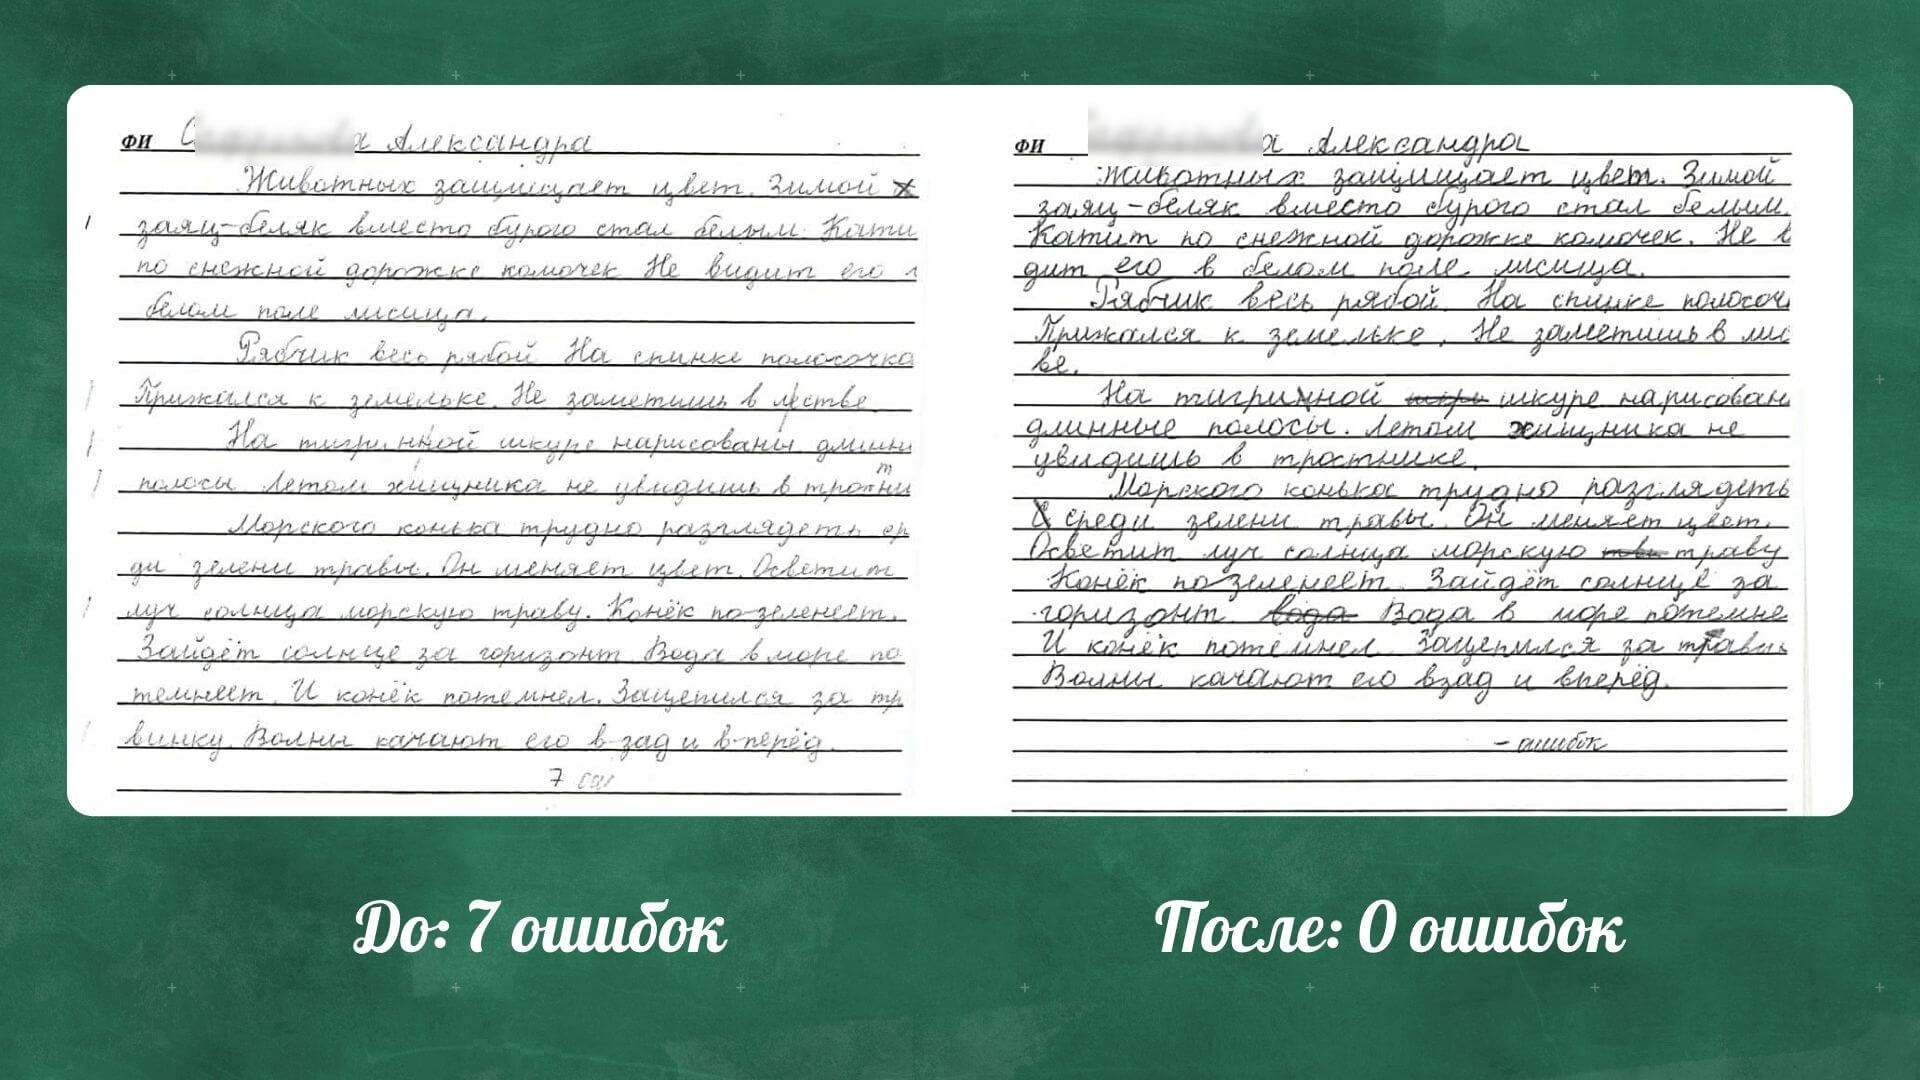 ФИ Александра
Животных защищает цвет. Зимой
заяц-беляк вместо бурого стал белым. Кати
по снежной дорожке комочек Не видит его
белом поле лисица.
Рябчик весь рябой На спинке полосочка
Прижался к земельке. Не заметишь в листве
На тигринной шкуре нарисованы длинны
полосы Летом хищника не увидишь в тротни
Морского конька трудно разглядеть ср
ди зелени травы. Он меняет цвет. Осветит
луч солнца морскую траву. Конёк по-зеленеет.
Зайдёт солнце за горизонт. Вода в море по
темнеет. И конёк потемнел. Зацепился за тр
винку. Волны качают его в-зад и в-перёд.
7
ФИ Александра
Животных защищает цвет. Зимой
заяц-беляк вместо бурого стал белым.
Катит по снежной дорожке комочек. Не в
дит его в белом поле лисица.
Рябчик весь рябой. На спинке полосоч
Прижался к земельке. Не заметишь в лис
ве.
На тигриной шкуре нарисован
длинные полосы. Летом хищника не
увидишь в тростнике.
Морского конька трудно разглядеть
среди зелени травы. Он меняет цвет.
Осветит луч солнца морскую траву
Конёк позеленеет. Зайдёт солнце за
горизонт. Вода в море потемне
И конёк потемнел. Зацепился за травин
Волны качают его взад и вперёд.
– ошибок
До: 7 ошибок
После: 0 ошибок